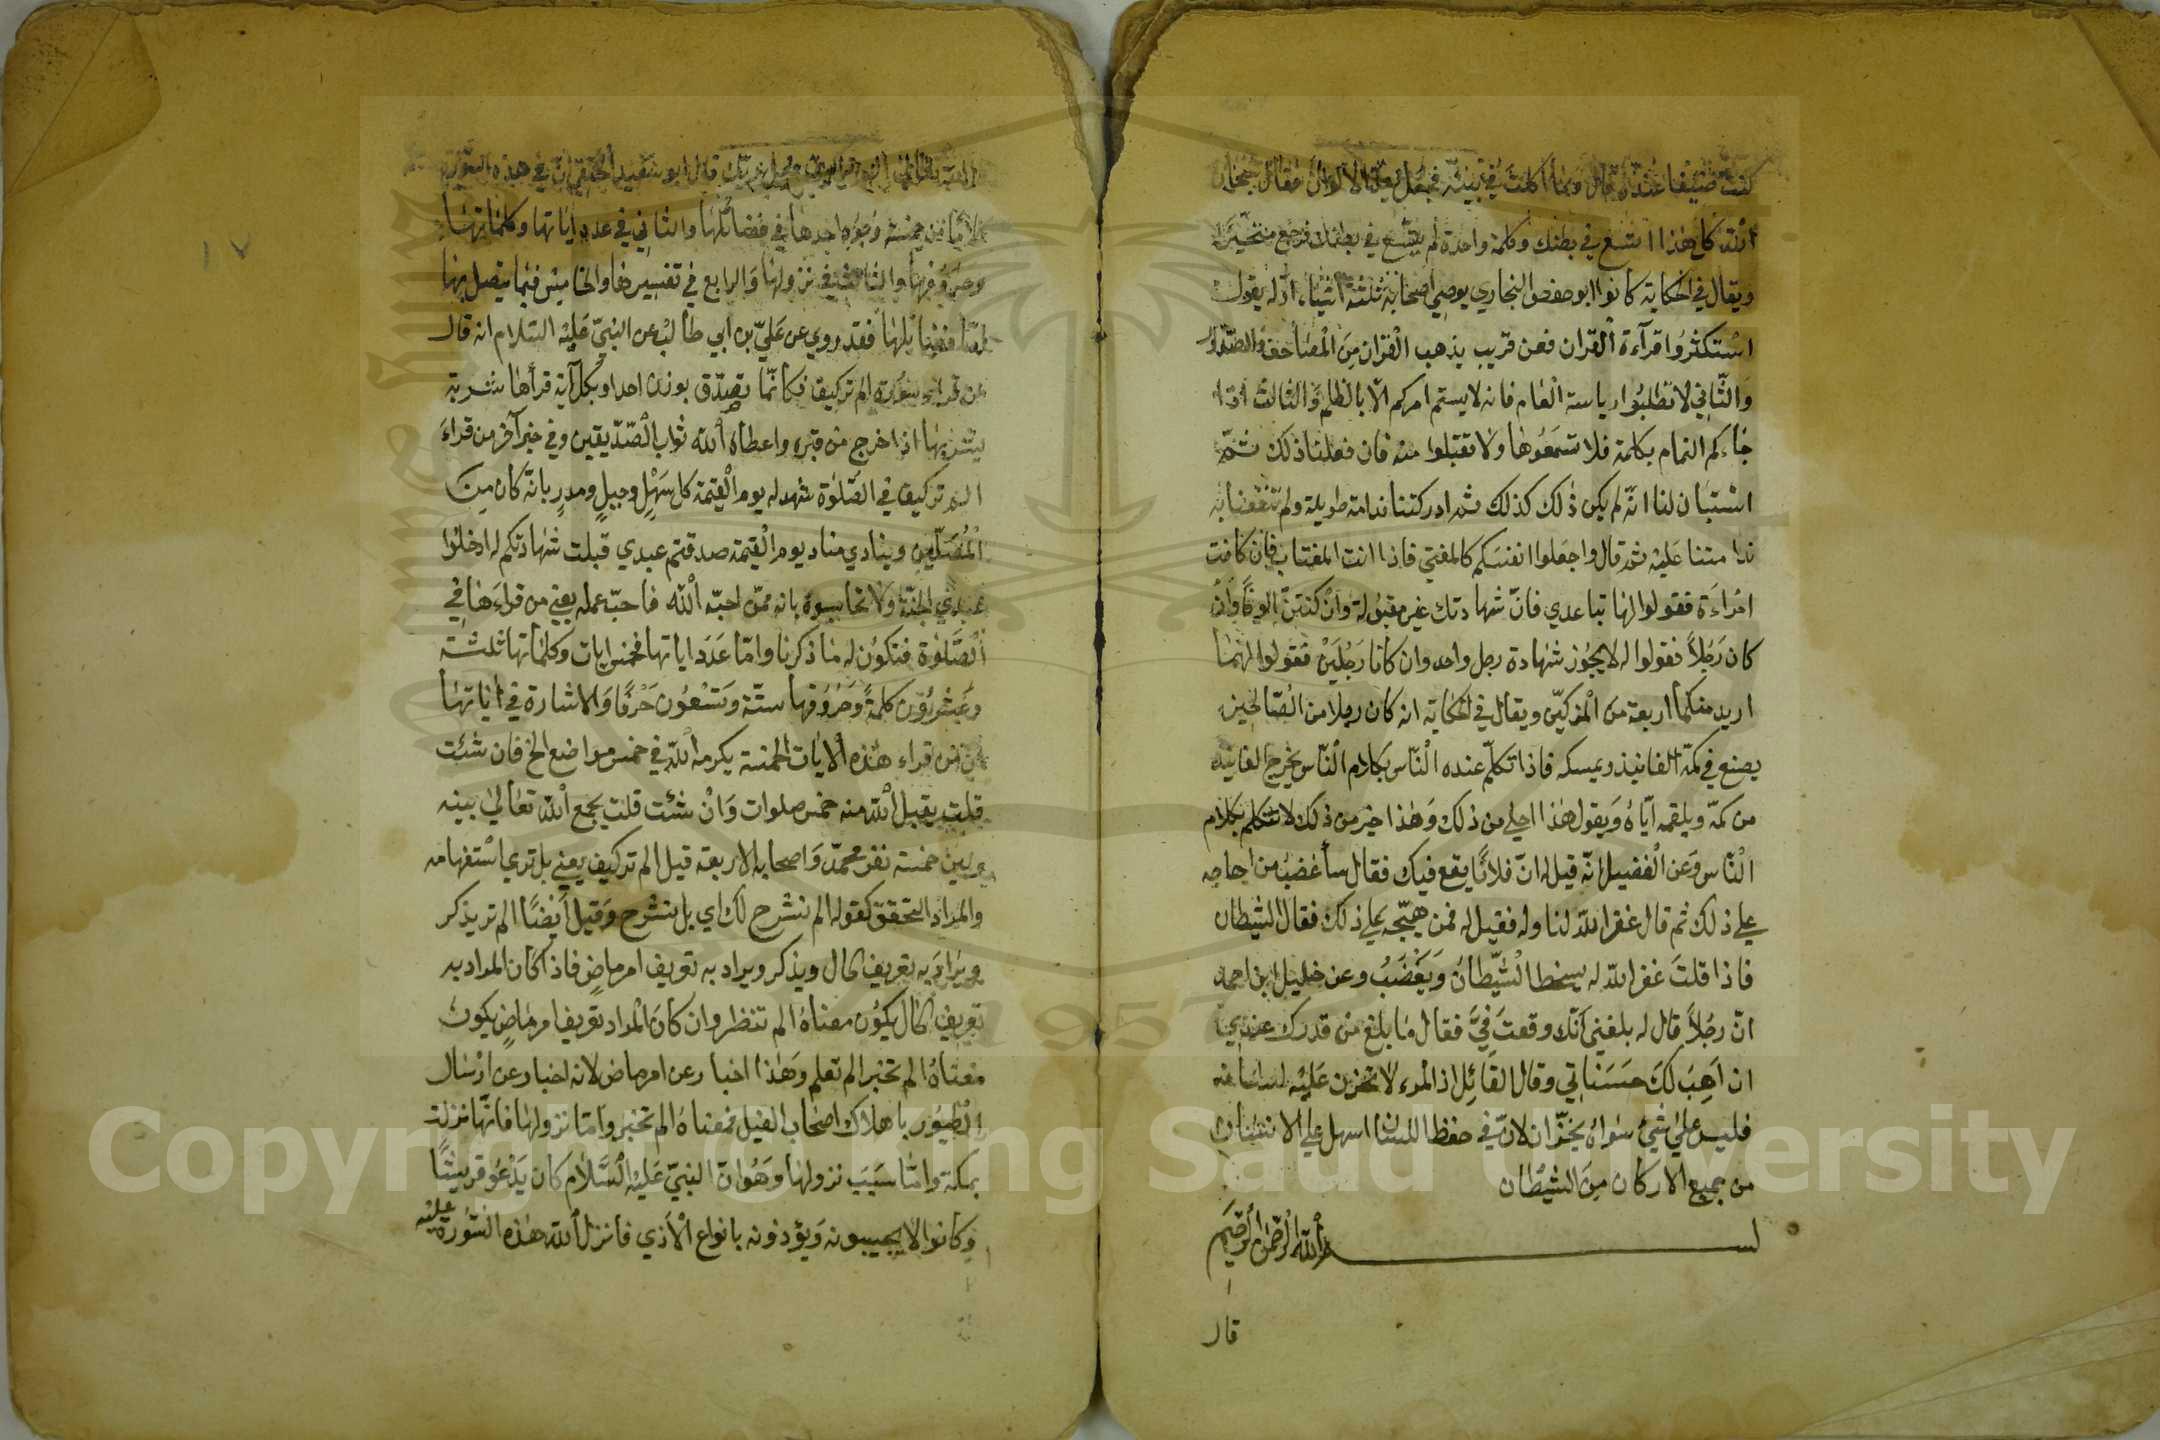 كنت ضيفا عنده قال وما اكلت في بيته فجعل يعد الالوان فقال سبحان
الله كل هذا اتسع في بطنك وكلمة واحدة لم يتسع في بطنك فرجع متحيرا
ويقال في الحكاية كانوا ابو حفص البخاري يوصي اصحابه ثلثة اشياء اوله يقول
استكثروا قرآءة القران فعن قريب يذهب القران من المصاحف والصدور
والثاني لا تطلبوا رياسة العام فانه لا يستم امركم الا بالظلم والثالث اذا
جاءكم النمام بكلمة فلا تسمعوها ولا تقبلوا منه فان فعلنا ذلك ثم
استبان لنا انه لم يكن ذلك كذلك ثم ادركتنا ندامة طويلة ولم تنفعنا به
ندامتنا عليه ثم قال واجعلوا انفسكم كالمفتي فاذا انت المغتاب فان كانت
امراءة فقولوا لها تباعدي فان شهادتك غير مقبولة وان كنتن الوفا وان
كان رجلا فقولوا له لا يجوز شهادة رجل واحد وان كانا رجلين فقولوا لهما
اريد منكما اربعة من المزكين ويقال في الحكاية انه كان رجلا من الصالحين
يصنع في كمه الفانيذ ويمسكه فاذا تكلم عنده الناس بكلام الناس يخرج الفانيذ
من كمه ويلقمه اياه ويقول هذا احلى من ذلك وهذا خير من ذلك لا تتكلم بكلام
الناس وعن الفضيل انه قيل له ان فلانا يقع فيك فقال سأغضب من اجاجه
على ذلك ثم قال غفر الله لنا وله فقيل له فمن هيجه على ذلك فقال الشيطان
فاذا قلت غفر الله له يسخط الشيطان ويغضب وعن خليل ابن احمد
ان رجلا قال له بلغني انك وقعت في فقال ما بلغ من قدرك عندي
ان اهب لك حسناتي وقال القائل اذا المرء لا تخزن عليه لسانه
فليس على شيء سواه بخزان لان في حفظ اللسان اسهل على الانسان
من جميع الاركان من الشيطان
بسم الله الرحمن الرحيم
قال
١٧
قال ابو سعيد الحنفي ان في هذه السورة
كلاما من خمسة وجوه احدها في فضائلها والثاني في عدد اياتها وكلماتها
وحروفها والثالث في نزولها والرابع في تفسيرها والخامس فيما يتصل بها
اما فضايلها فقد روي عن علي بن ابي طالب عن النبي عليه السلام انه قال
من قراء سورة الم تركيف فكانما تصدق بوزن احد وبكل آية قرأها شربة
يشربها اذا خرج من قبره واعطاه الله ثواب الصديقين وفي خبر آخر من قراء
الم تركيف في الصلوة شهد له يوم القيمة كل سهل وجبل ومدر بانه كان من
المصلين وينادي مناد يوم القيمة صدقتم عبدي قبلت شهادتكم له ادخلوا
عبدي الجنة ولا تحاسبوه بانه ممن احبه الله فاحب عمله يعني من قراءها في
الصلوة فتكون له ما ذكرنا واما عدد اياتها فخمس ايات وكلماتها ثلثة
وعشرون كلمة وحروفها ستة وتسعون حرفا والاشارة في اياتها
ان من قراء هذه الايات الخمسة يكرمه الله في خمس مواضع الخ فان شئت
قلت يقبل الله منه خمس صلوات وان شئت قلت يجمع الله تعالى بينه
وبين خمسة نفر محمد واصحابه الاربعة قيل الم تركيف يعني بل تري استفهامه
والمراد التحقق كقوله الم نشرح لك اي بل نشرح وقيل ايضا الم تر يذكر
ويراد به تعريف الحال ويذكر ويراد به تعريف امر ماض فاذا كان المراد به
تعريف الحال يكون معناه الم تنظر وان كان المراد تعريف امر ماض يكون
معناه الم تخبر الم تعلم وهذا اخبار عن امر ماض لانه اخبار عن ارسال
الطيور باهلاك اصحاب الفيل فمعناه الم تخبر واما نزولها فانها نزلت
بمكة واما سبب نزولها وهو ان النبي عليه السلام كان يدعو قريشا
وكانوا لا يجيبونه ويؤذونه بانواع الاذي فانزل الله هذه السورة عليه
Copyright © King Saud University
1957